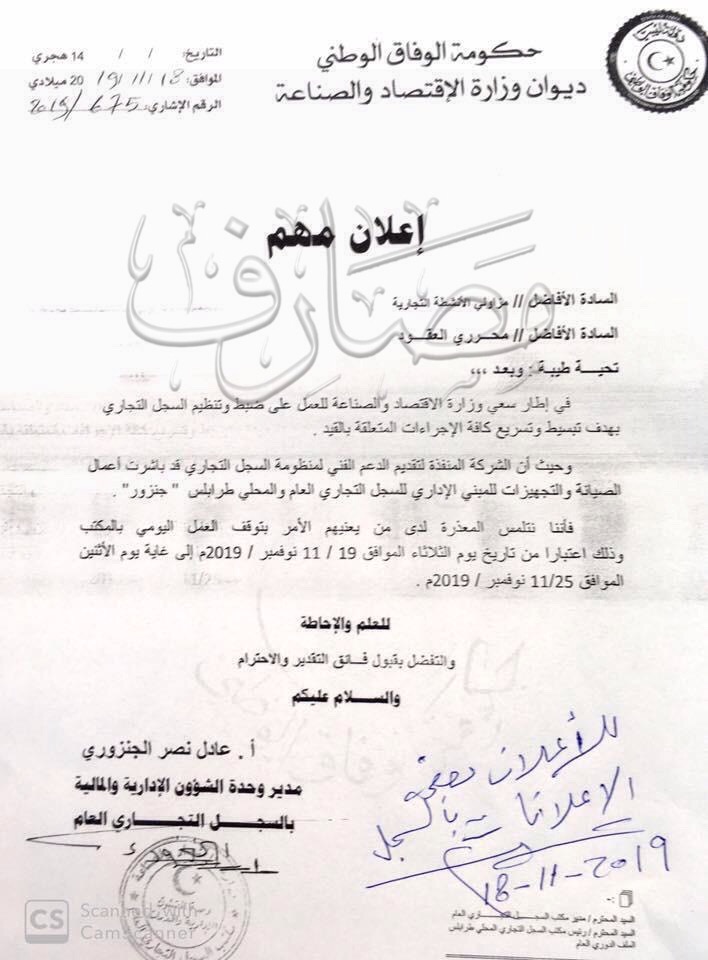 حكومة الوفاق الوطني
ديوان وزارة الإقتصاد والصناعة
التاريخ: / / 14 هجري
الموافق: 18 / 11 / 2019 ميلادي
الرقم الإشاري: 675 / 2019
مصارف
إعلان مهم
السادة الأفاضل // مزاولي الأنشطة التجارية
السادة الأفاضل // محرري العقود
تحية طيبة : وبعد ,,,
في إطار سعي وزارة الاقتصاد والصناعة للعمل على ضبط وتنظيم السجل التجاري
بهدف تبسيط وتسريع كافة الإجراءات المتعلقة بالقيد .
وحيث أن الشركة المنفذة لتقديم الدعم الفني لمنظومة السجل التجاري قد باشرت أعمال
الصيانة والتجهيزات للمبني الإداري للسجل التجاري العام والمحلي طرابلس " جنزور" .
فأننا نتلمس المعذرة لدى من يعنيهم الأمر بتوقف العمل اليومي بالمكتب
وذلك اعتبارا من تاريخ يوم الثلاثاء الموافق 19 / 11 نوفمبر / 2019م إلى غاية يوم الأثنين
الموافق 11/25 نوفمبر / 2019م .
للعلم والإحاطة
والتفضل بقبول فائق التقدير والاحترام
والسلام عليكم
أ . عادل نصر الجنزوري
مدير وحدة الشؤون الإدارية والمالية
بالسجل التجاري العام
للأعلان بصفحة
الاعلانات بالسجل
18-11-2019
السيد المحترم / مدير مكتب السجل التجاري العام
السيد المحترم / رئيس مكتب السجل التجاري المحلي طرابلس
الملف الدوري العام
CS Scanned with
CamScanner